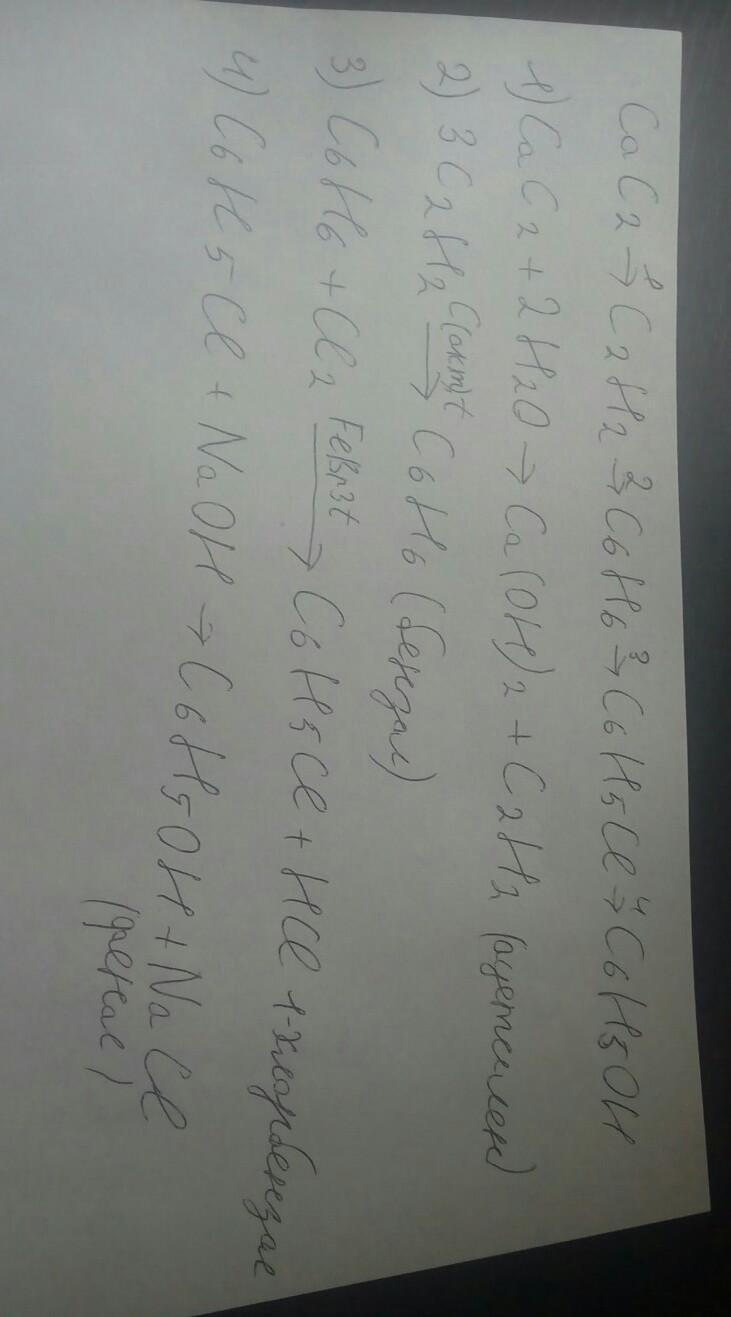 CaC2 →1 C2H2 →2 C6H6 →3 C6H5Cl →4 C6H5OH
1) CaC2 + 2H2O → Ca(OH)2 + C2H2 (ацетилен)
2) 3C2H2 C(акт)t → C6H6 (бензол)
3) C6H6 + Cl2 FeBr3t → C6H5Cl + HCl 1-хлорбензол
4) C6H5Cl + NaOH → C6H5OH + NaCl
(фенол)